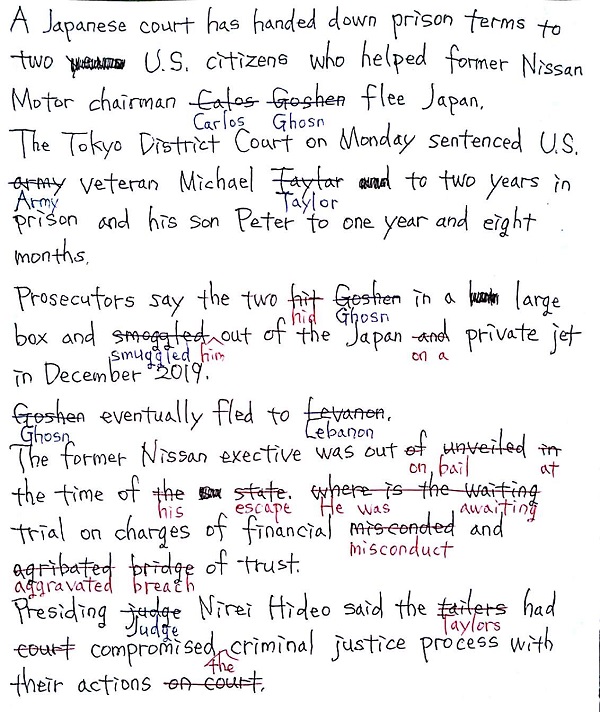 A Japanese court has handed down prison terms to
two U.S. citizens who helped former Nissan
Motor chairman Calos Goshen flee Japan.
Carlos Ghosn
The Tokyo District Court on Monday sentenced U.S.
army veteran Michael Taylar and to two years in
Army Taylor
prison and his son Peter to one year and eight
months.
Prosecutors say the two hit Goshen in a large
hid Ghosn
box and smoggled out of the Japan and private jet
smuggled him on a
in December 2019.
Goshen eventually fled to Levanon.
Ghosn Lebanon
The former Nissan exective was out of unveiled in
on bail at
the time of the state. where is the waiting
his escape He was awaiting
trial on charges of financial misconded and
misconduct
agribated bridge of trust.
aggravated breach
Presiding judge Nirei Hideo said the tailers had
Judge Taylors
court compromised criminal justice process with
the
their actions on court.